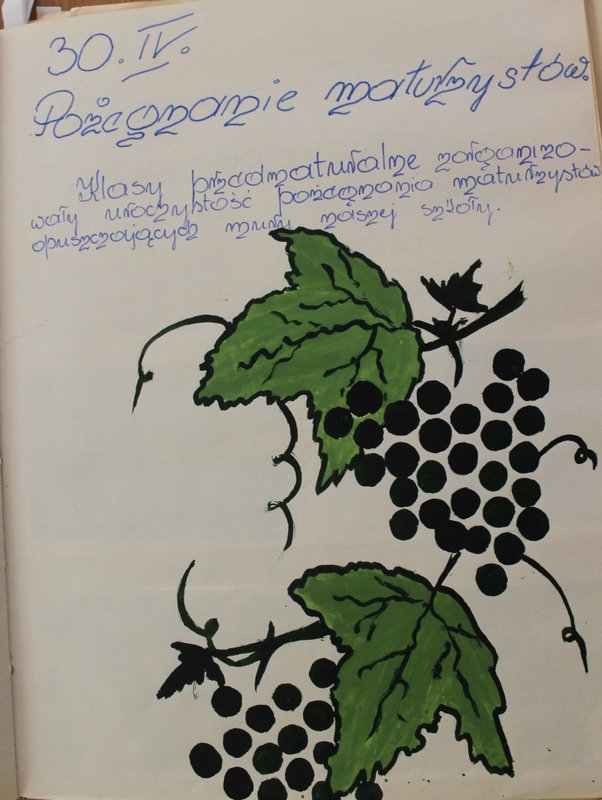 30. IV.
Pożegnanie maturzystów.
Klasy przedmaturalne zorganizo-
wały uroczystość pożegnania maturzystów
opuszczających mury naszej szkoły.